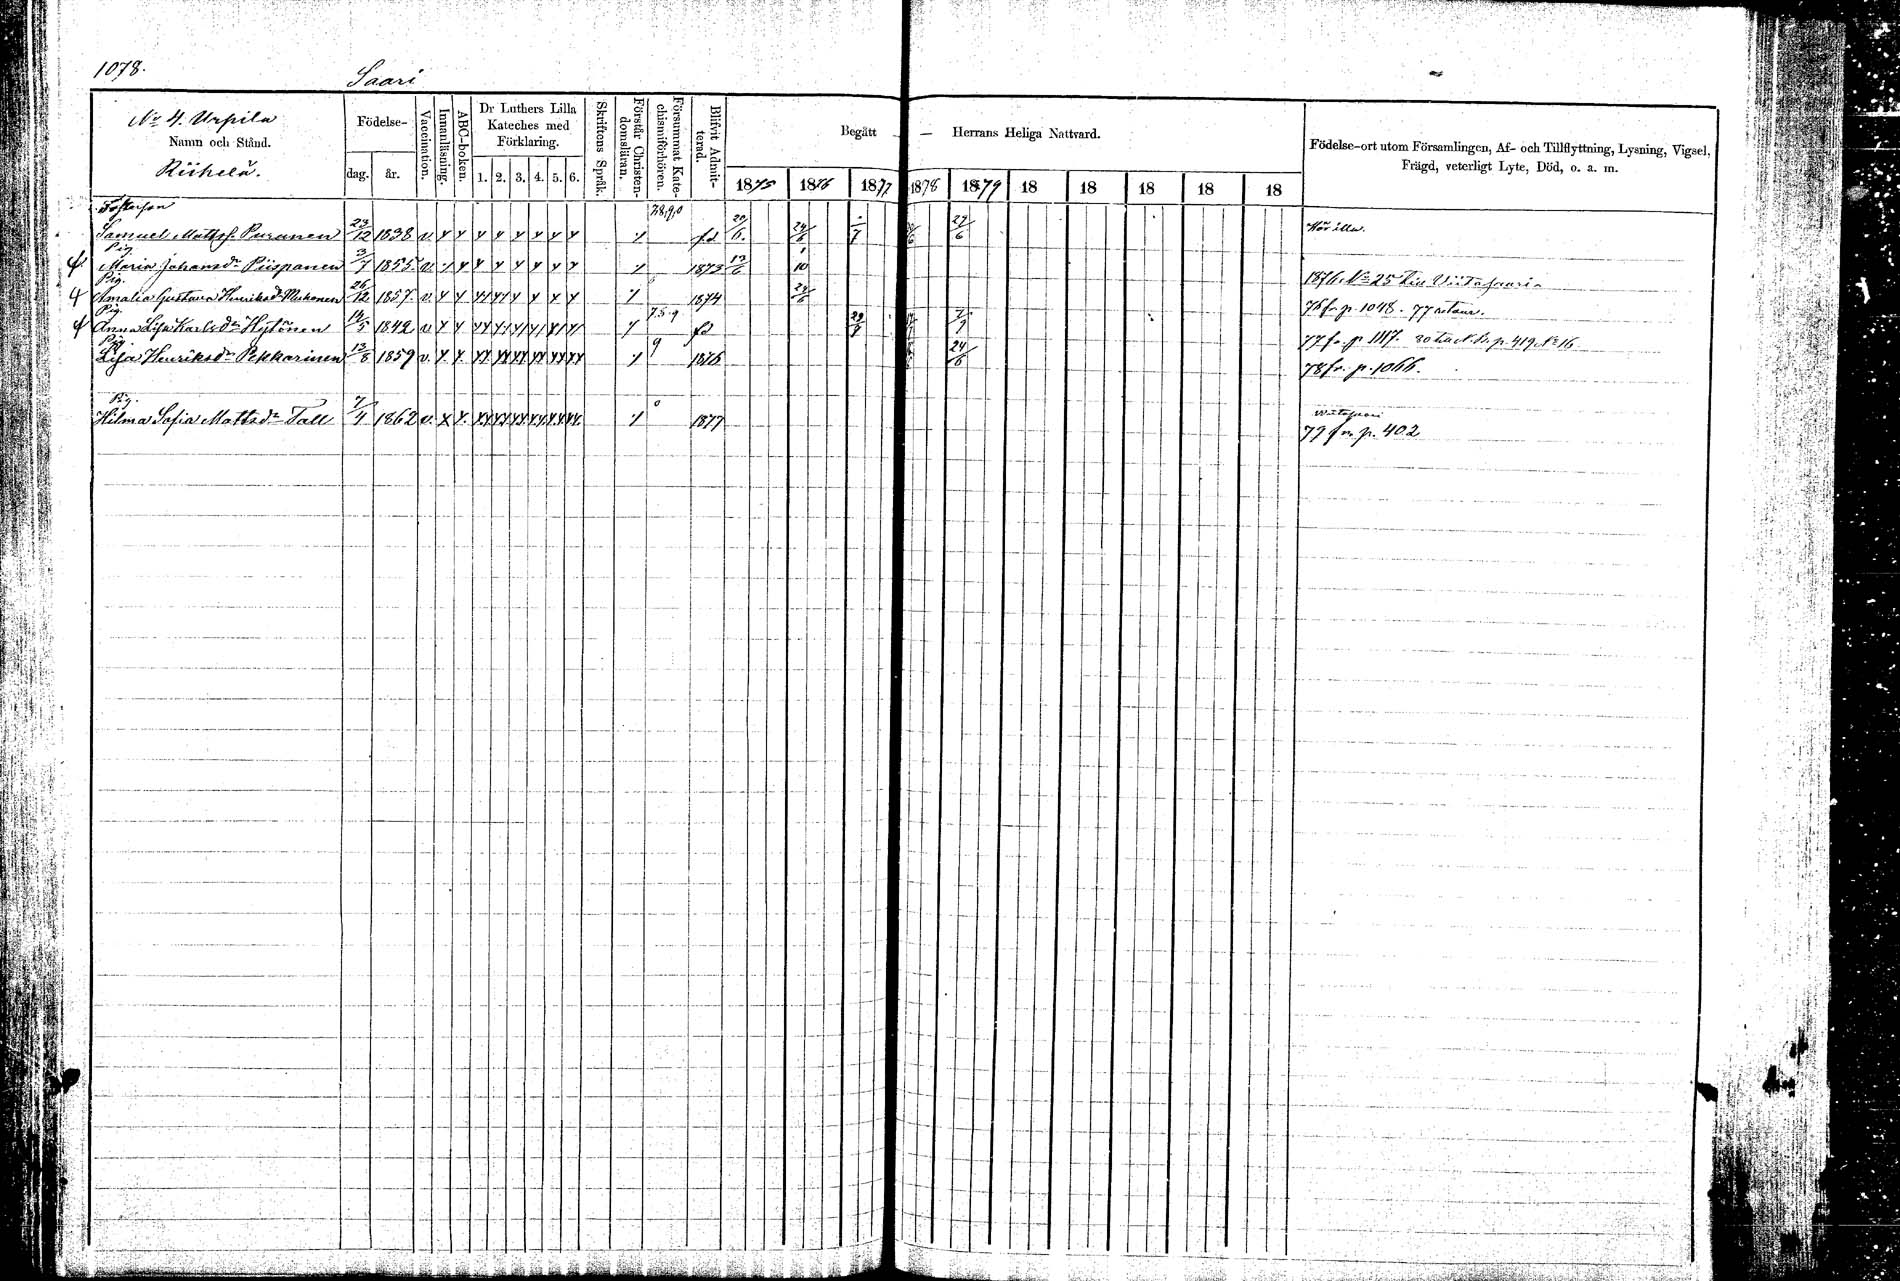 1078.
Saari
No 4. Urpila
Namn och Stånd.
Riihelä.
Födelse-
dag.
år.
Vaccination.
Innanläsning.
ABC-boken.
Dr Luthers Lilla
Kateches med
Förklaring.
1. 2. 3. 4. 5. 6.
Skriftens Språk.
Förstår Christen-
domsläran.
Försummat Kate-
chismiförhören.
Blifvit Admit-
terad.
Begått — Herrans Heliga Nattvard.
1875 1876 1877 1878 1879 18 18 18 18 18
Födelse-ort utom Församlingen, Af- och Tillflyttning, Lysning, Vigsel,
Frägd, veterligt Lyte, Död, o. a. m.
Fosterson 7,8,9,0
Samuel Mattss. Puranen 23/12 1838 v. fd 20/6. 24/6 29/6 Hör illa.
Pig.
Maria Johansdr Piispanen 3/7 1855 v. 1873 13/6 1/10 1876 No 25 Viitasaari
Pig.
Amalia Gustava Henriksdr 26/12 1857. v. 1874 24/6 76 fr. p. 1048. 77 retour.
Pig. 7.5.9
Anna Lisa Karlsdr Hytönen 14/5 1842 v. fd 22/7 77 fr. p. 1117. p. 419 No 16
Pig. 9
Lisa Henriksdr Pekkarinen 13/8 1859 v. 1876 24/6 78 fr. p. 1066.
Pig. 0 Viitasaari
Hilma Sofia Mattsdr Tall 7/4 1862 v. 1877 79 fr. p. 402